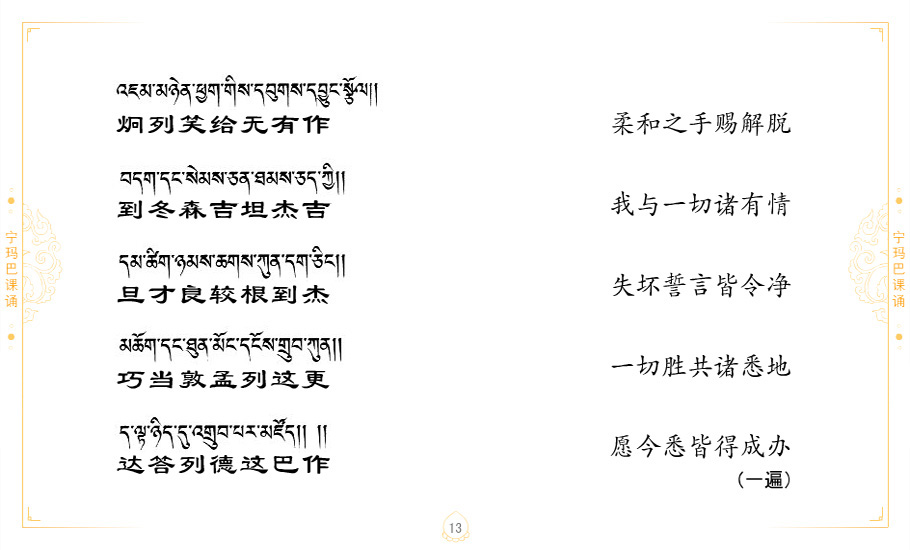 འཇམ་མཉེན་ཕྱག་གིས་དབུགས་དབྱུང་སྩོལ།།
炯列笑给无有作
柔和之手赐解脱
བདག་དང་སེམས་ཅན་ཐམས་ཅད་ཀྱི།།
到冬森吉坦杰吉
我与一切诸有情
དམ་ཚིག་ཉམས་ཆགས་ཀུན་དག་ཅིང།།
旦才良较根到杰
失坏誓言皆令净
མཆོག་དང་ཐུན་མོང་དངོས་གྲུབ་ཀུན།།
巧当敦孟列这更
一切胜共诸悉地
ད་ལྟ་ཉིད་དུ་འགྲུབ་པར་མཛོད།། །།
达答列德这巴作
愿今悉皆得成办
（一遍）
宁玛巴课诵
宁玛巴课诵
13